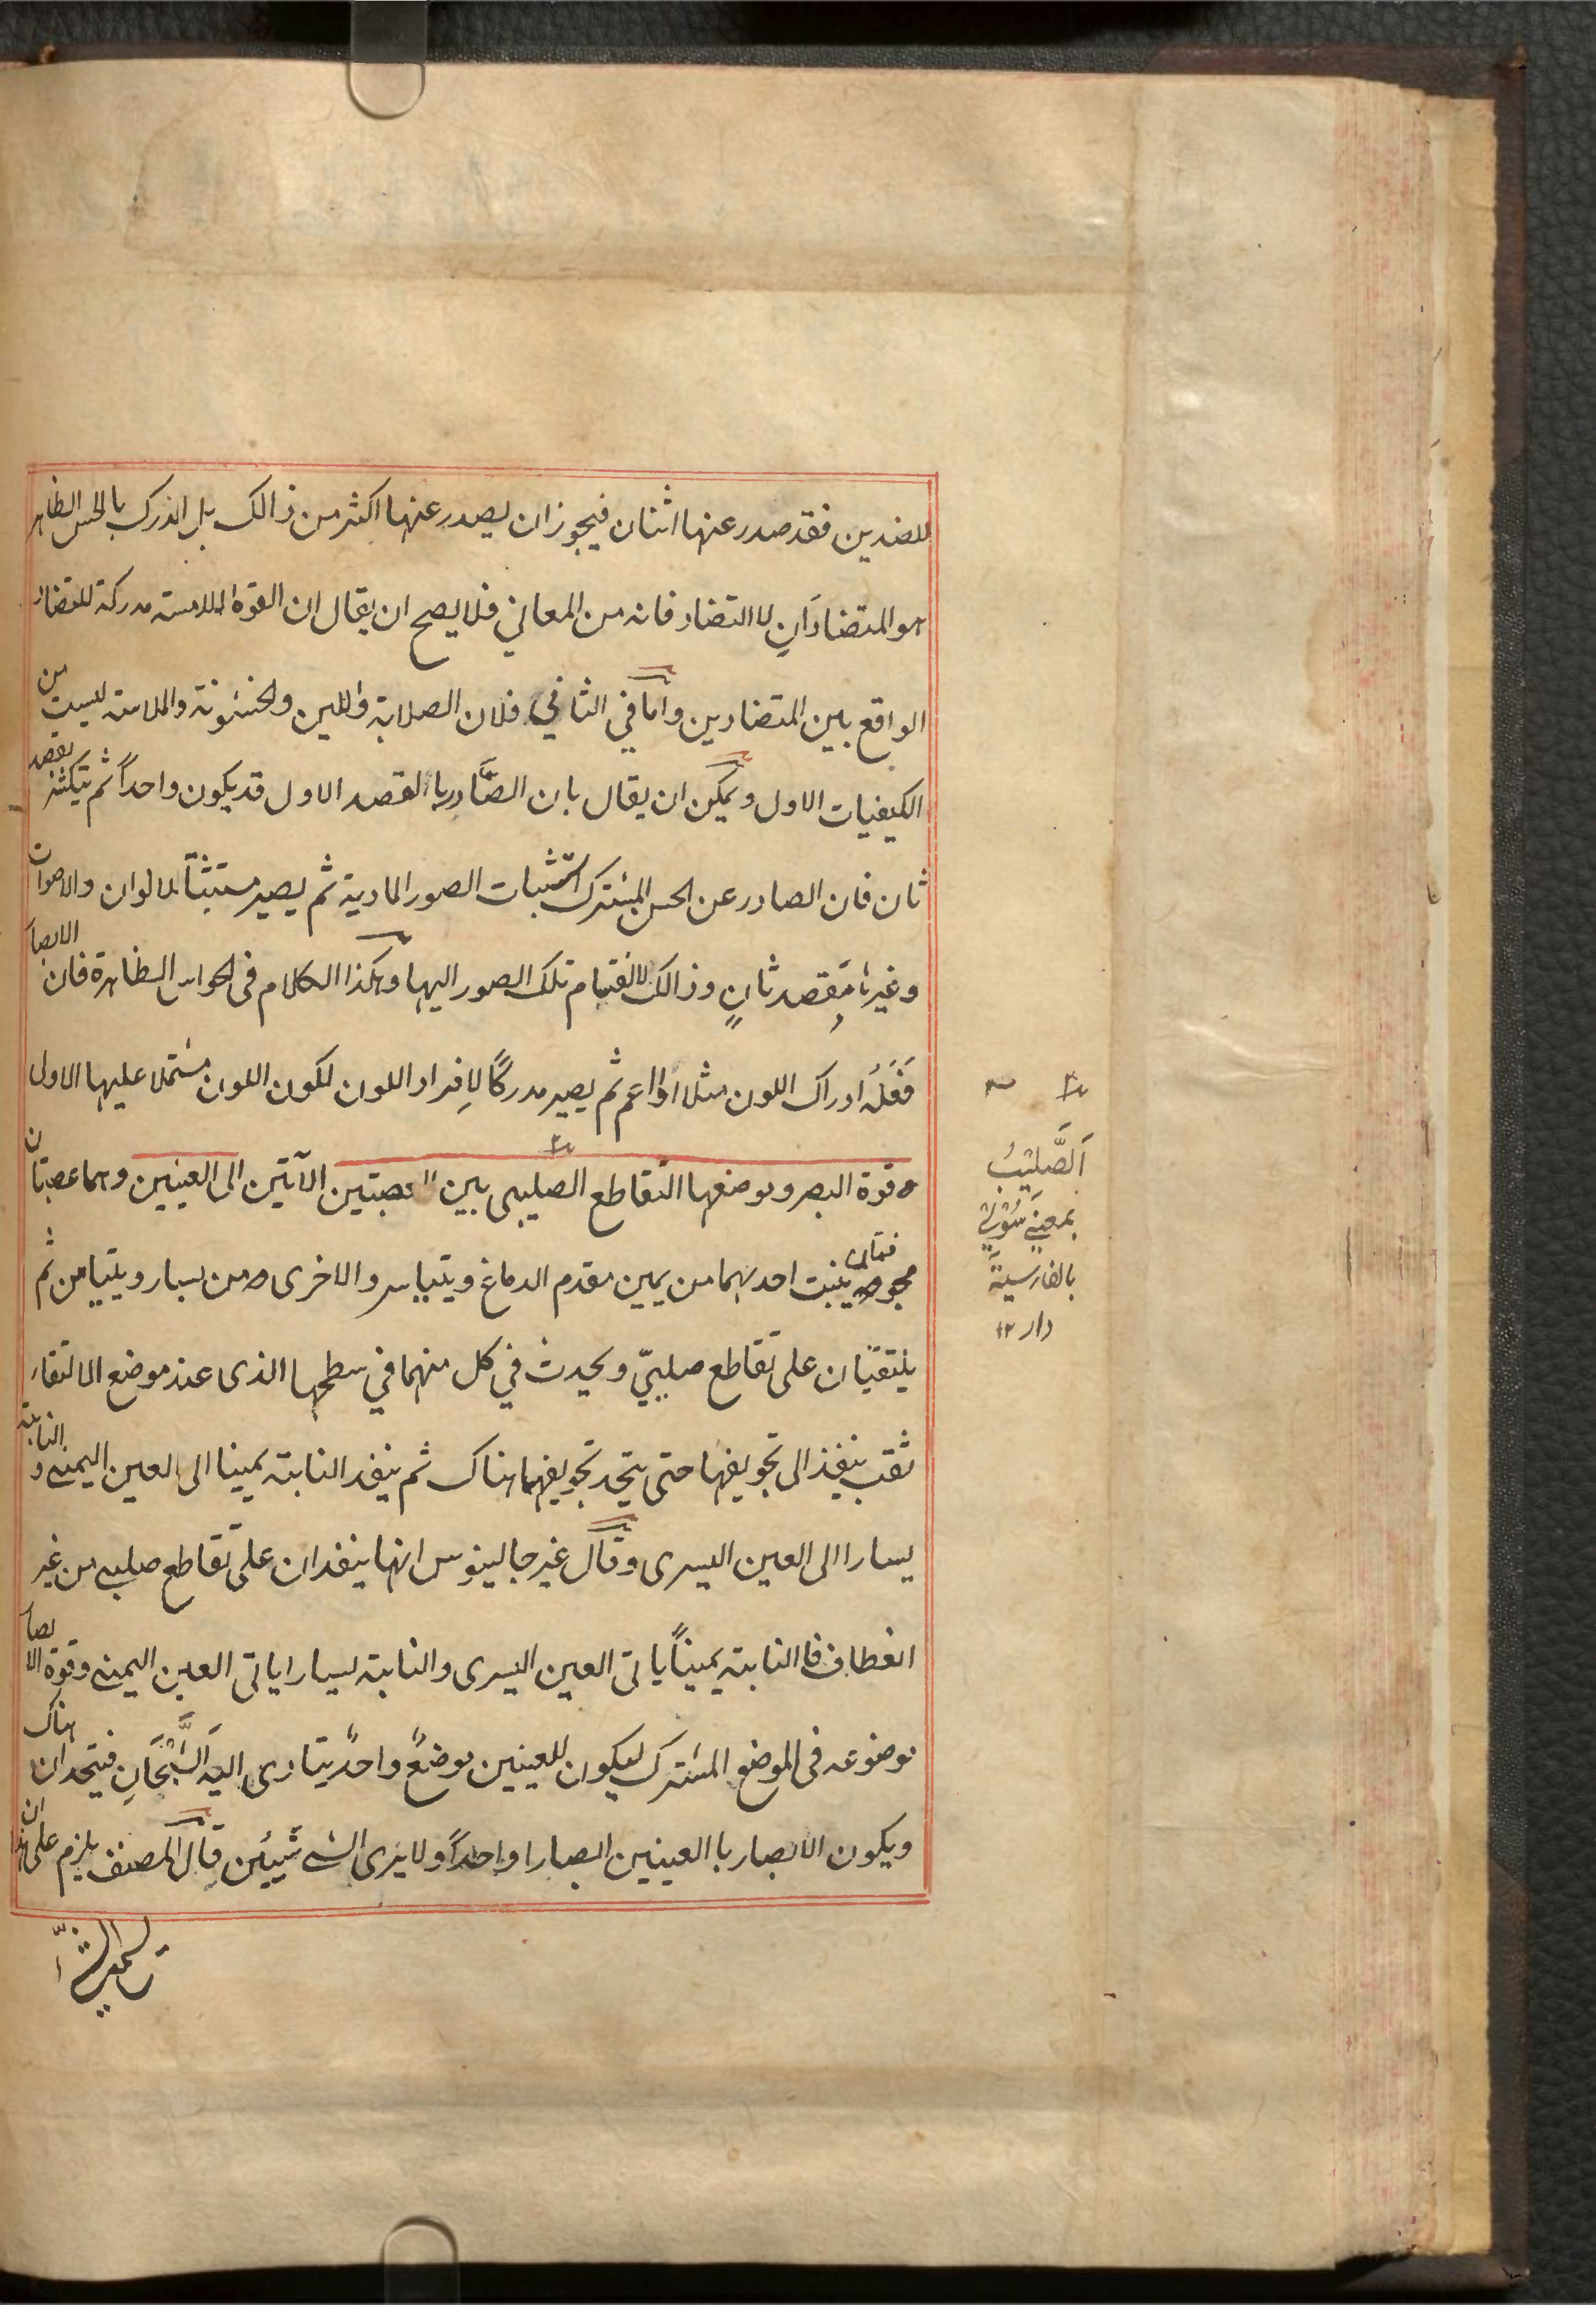 للضدين فقد صدر عنها اثنان فيجوز ان يصدر عنها اكثر من ذالك بل المدرك بالحس الظاهر
هو المتضادَانِ لا التضاد فانه من المعاني فلا يصح ان يقال ان القوة اللامسته مدركة للتضاد
الواقع بين المتضادين واما في الثاني فلان الصلابة واللين والخشونة والملاسته ليست من
الكيفيات الاول ويمكن ان يقال بان الصَّادر باالقصد الاول قد يكون واحداً ثم يتكثر بقصد
ثان فان الصادر عن الحس المشترك استثبات الصور المادية ثم يصير مستثبتاً لالوان والاصوات
وغيرها بقصد ثانٍ وذالك لانقسام تلك الصور اليها وهكذا الكلام في الحواس الظاهرة فان الابصار
فعله ادراك اللون مثلا ثم يصير مدركًا لافراد اللون لكون اللون مشتملا عليها الاول
ه قوة البصر وموضعها التقاطع الصليبى بين العصبتين الآتين الى العينين وهما عصبتان
مجوفتان ينبت احدىهما من يمين مقدم الدماغ ويتياسر والاخرى من يسار ويتيامن ثم
يلتقيان على تقاطع صليبيّ ويحدث في كل منهما في سطحها الذى عند موضع الالتقاء
ثقب ينفذ الى تجويفها حتى يتحد تجويفهما هناك ثم ينفد النابتة يمينا الى العين اليمنى و النابتة
يسارا الى العين اليسرى وقال غير جالينوس انها ينفدان على تقاطع صليبى من غير
انعطاف فاالنابتة يميناً ياتى العين اليسرى والنابتة يسارا ياتى العين اليمنى وقوة الابصار
موضوعه فى الموضع المشترك ليكون للعينين موضعً واحدً يتادى اليه الشَّبْحَانِ فيتحدان هناك
ويكون الابصار باالعينين ابصارا واحداً ولا يرى الشى شيئين قال المصنف يلزم على هذا ان
اَلصَّليْبُ
بمعنى سُوْلِيْ
بالفارسيَّة
دار ١٢